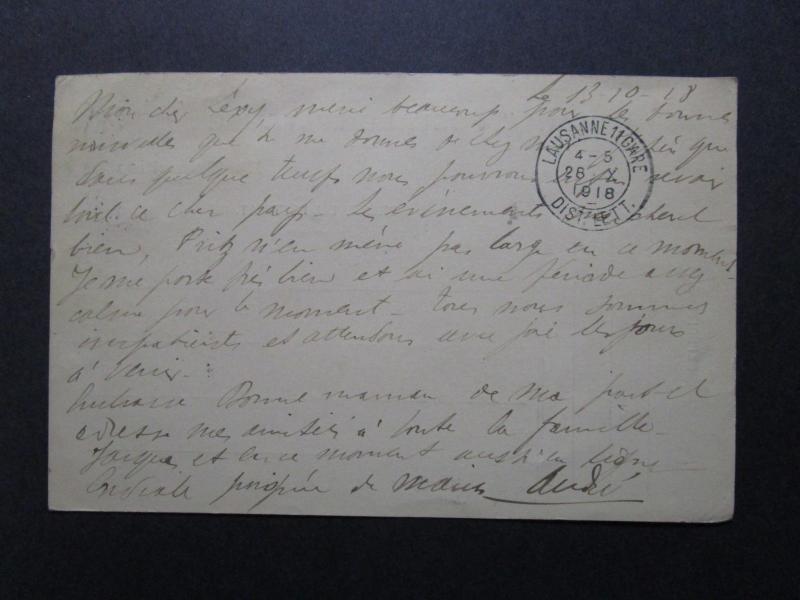 Le 13-10-18
Mon cher merci beaucoup pour les bonnes
nouvelles que tu me donnes de chez que
dans quelque temps nous pourrons avoir
tout ce cher pays. Les événements marchent
bien, Fritz n'en mène pas large en ce moment.
Je me porte très bien et ai une période assez
calme pour le moment - tous nous sommes
impatients et attendons avec joie les jours
à venir.
Embrasse Bonne maman de ma part et
adresse mes amitiés à toute la famille -
Jacques est en ce moment aussi en ligne
Cordiale poignée de mains André
LAUSANNE 11 GARE
4-5
28 X
1918
DIST. LETT.